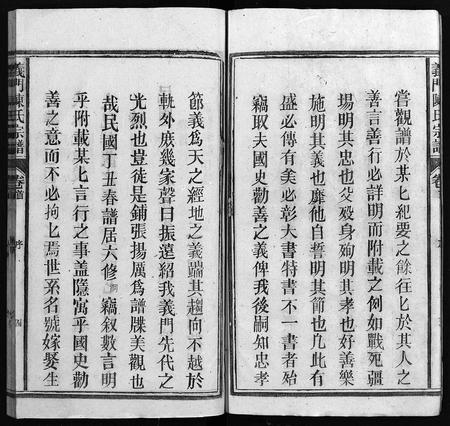 義門陳氏宗譜
嘗觀譜於某匕紀要之餘往匕於其人之
善言善行必詳明而附載之例如戰死疆
場明其忠也父殁身殉明其孝也好善樂
施明其義也靡他自誓明其節也凢此有
盛必傳有美必彰大書特書不一書者殆
竊取夫國史勸善之義俾我後嗣知忠孝
節義爲天之經地之義端其趨向不越於
軌外庻幾家聲日振遠紹我義門先代之
光烈也豈徒是鋪張揚厲爲譜牒美觀也
哉民國丁丑春譜居六修竊叙數言明
乎附載某匕言行之事盖隱寓乎國史勸
善之意而不必拘匕焉世系名號嫁娶生
義門陳氏宗譜
卷首
序
四